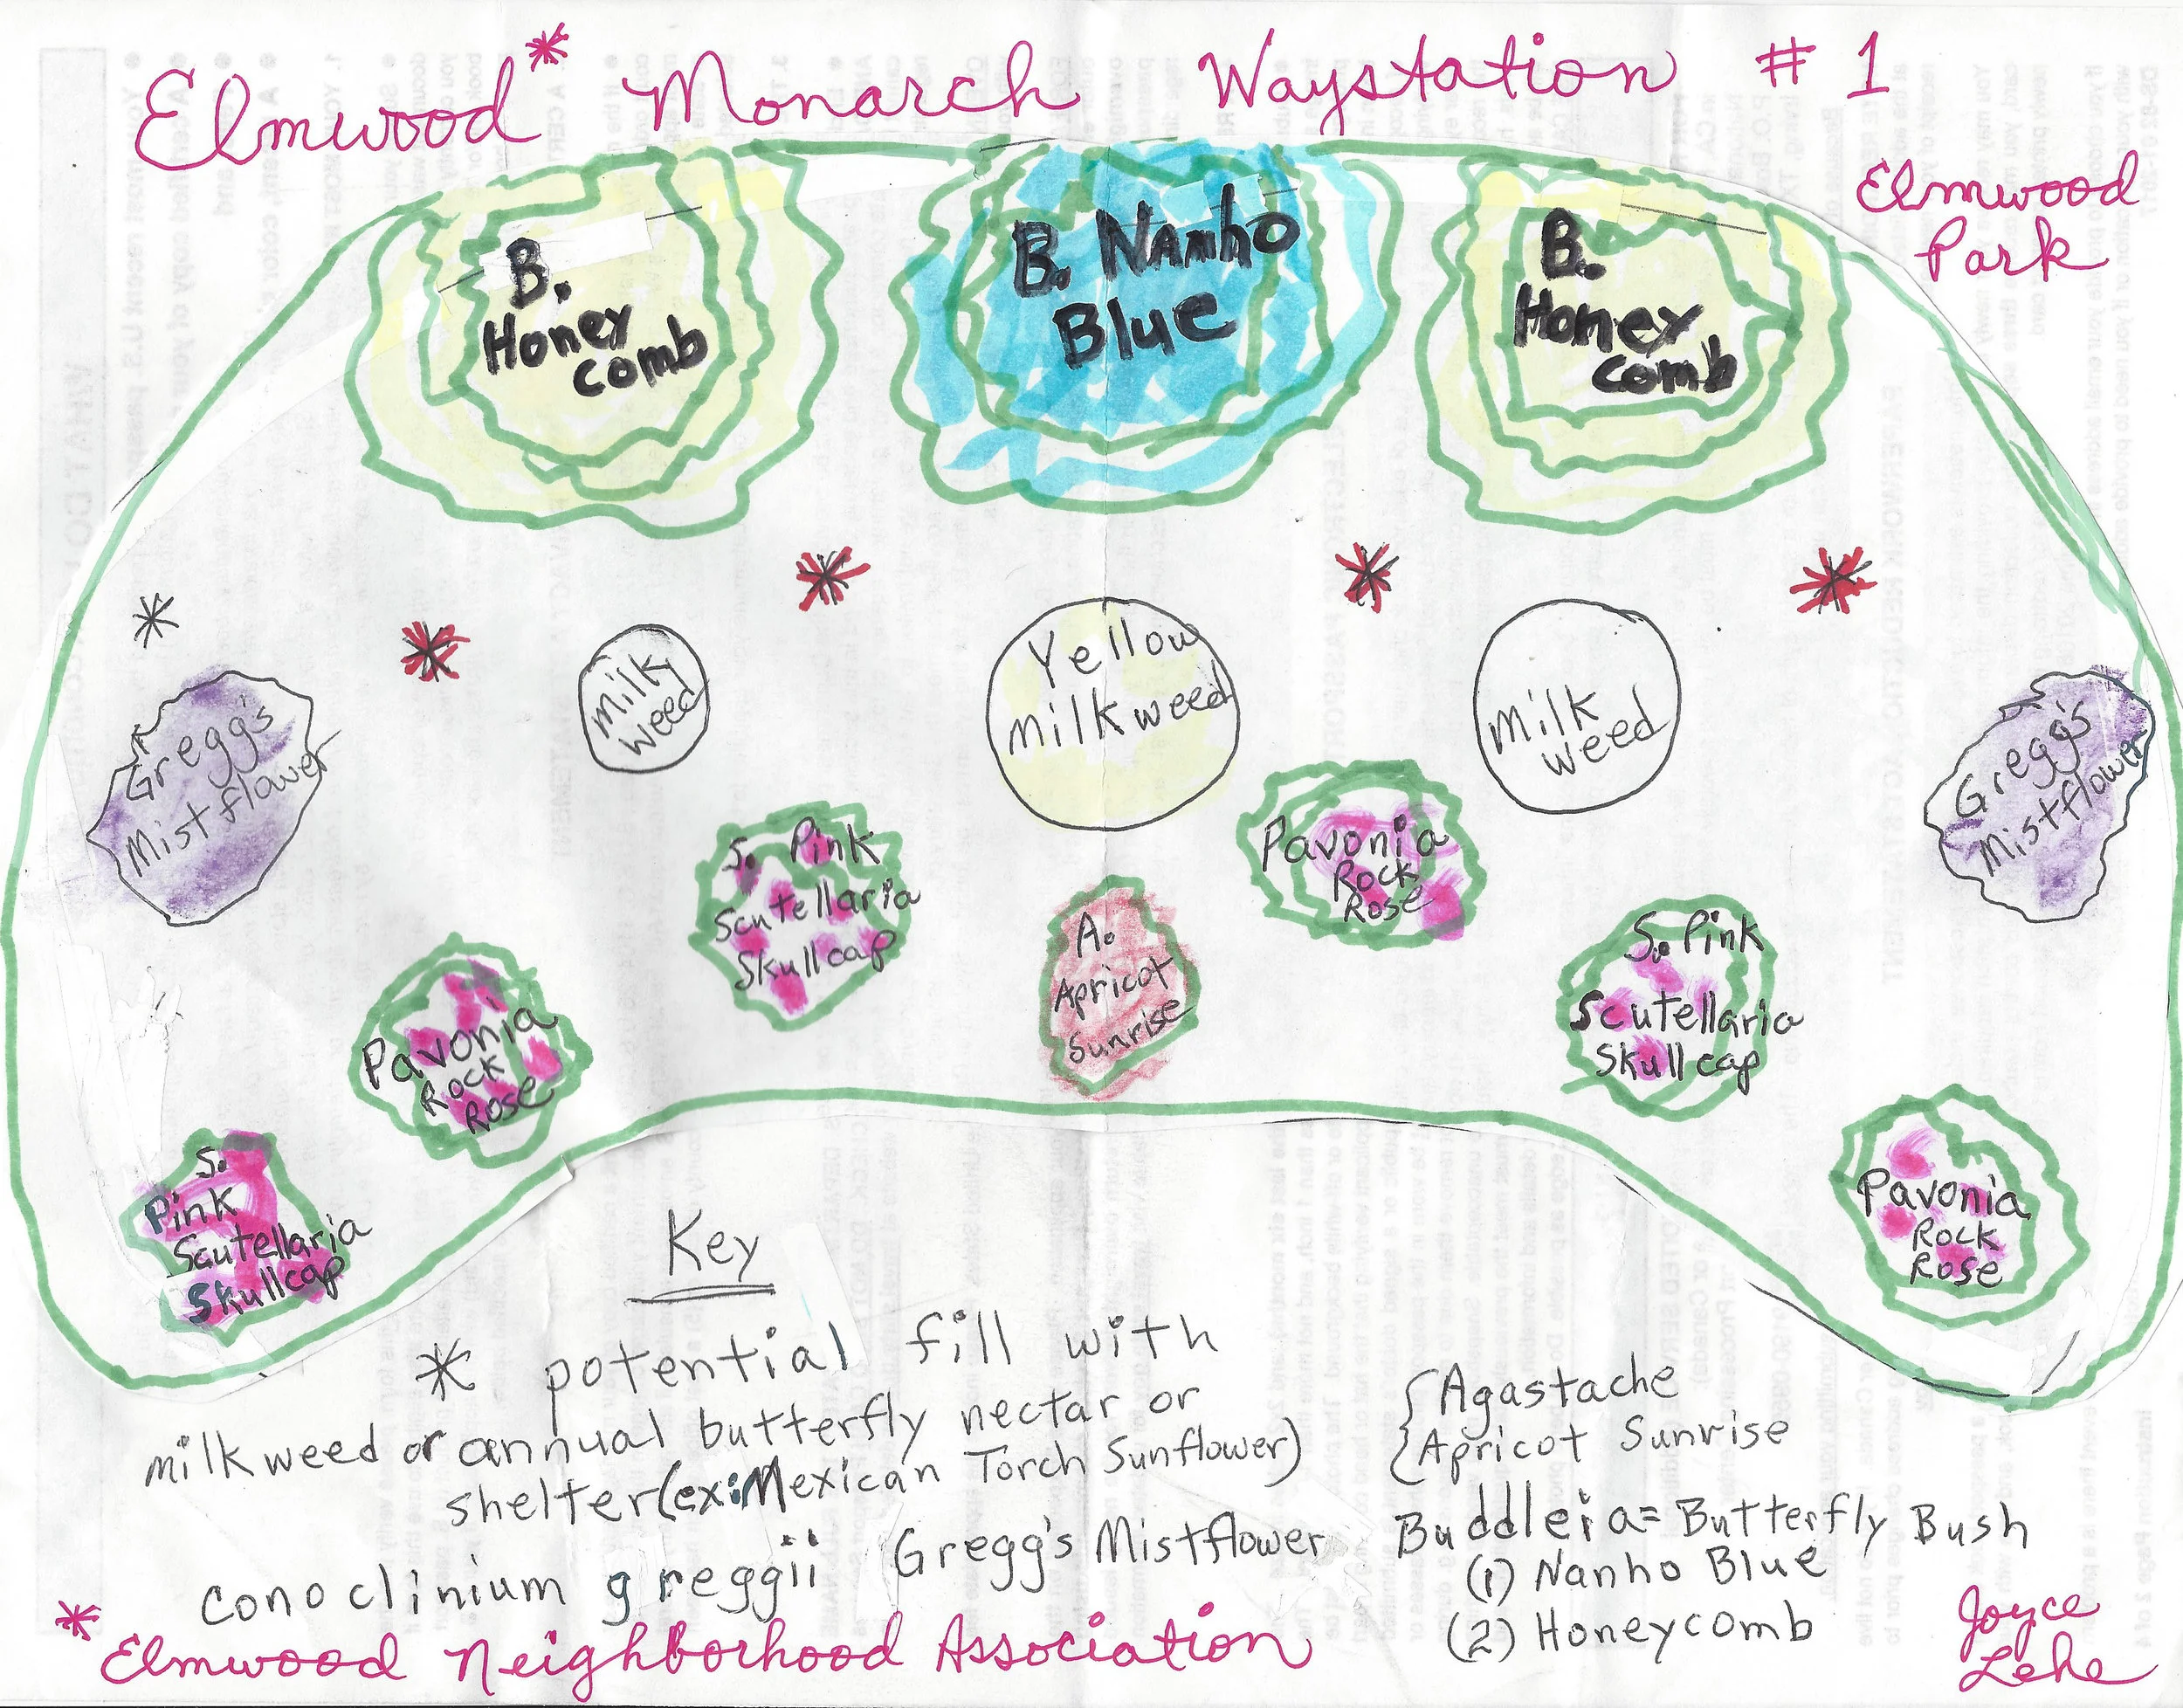 Elmwood* Monarch Waystation # 1
Elmwood
Park
B.
Honey
comb
B. Nanho
Blue
B.
Honey
comb
*
*
*
*
*
Gregg's
Mistflower
milk
weed
Yellow
milkweed
milk
weed
Gregg's
Mistflower
S. Pink
Scutellaria
Skullcap
Pavonia
Rock
Rose
A.
Apricot
Sunrise
S. Pink
Scutellaria
Skullcap
Pavonia
Rock
Rose
S.
Pink
Scutellaria
Skullcap
Pavonia
Rock
Rose
Key
* potential fill with
milkweed or annual butterfly nectar or
shelter (ex: Mexican Torch Sunflower)
conoclinium greggii Gregg's Mistflower
{Agastache
{Apricot Sunrise
Buddleia = Butterfly Bush
(1) Nanho Blue
(2) Honeycomb
* Elmwood Neighborhood Association
Joyce